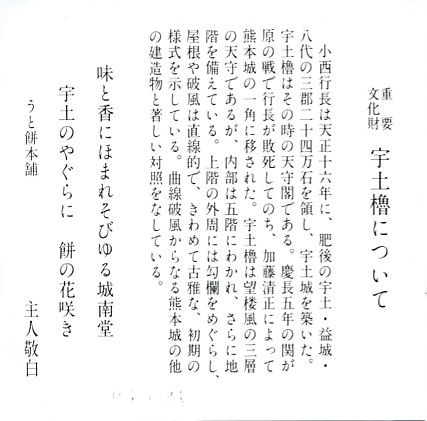 重要文化財 宇土櫓について
小西行長は天正十六年に、肥後の宇土・益城・
八代の三郡二十四万石を領し、宇土城を築いた。
宇土櫓はその時の天守閣である。慶長五年の関が
原の戦で行長が敗死してのち、加藤清正によって
熊本城の一角に移された。宇土櫓は望楼風の三層
の天守であるが、内部は五階にわかれ、さらに地
階を備えている。上階の外周には勾欄をめぐらし、
屋根や破風は直線的で、きわめて古雅な、初期の
様式を示している。曲線破風からなる熊本城の他
の建造物と著しい対照をなしている。
味と香にほまれそびゆる城南堂
宇土のやぐらに 餅の花咲き
うと餅本舗 主人敬白